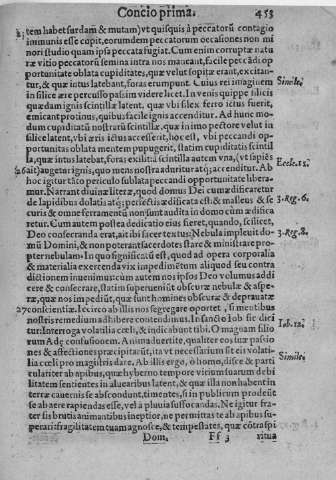 Concio prima. 453
tem habet surdam & mutam) vt quisquis à peccatorũ contagio
immunis esse cupit, eorumdem peccatorum occasiones non mi
nori studio quam ipsa peccata fugiat. Cum enim corruptæ natu
ræ vitio peccatorũ semina intra nos maneant, facile peccãdi op
portunitate oblata cupiditates, quæ velut sopitæ erant, excitan-
tur, & quæ intus latebant, foras erumpunt. Cuius rei imaginem
in silice ære percusso passim videre licet. In venis quippe silicis
quædam ignis scintillæ latent, quæ vbi silex ferro ictus fuerit,
emicant protinus, quibus facile ignis accenditur. Ad hunc mo-
dum cupiditatũ nostrarũ scintillæ, quæ in imo pectore velut in
silice latent, vbi æris ictus accesserit, hoc est, vbi peccandi op-
portunitas oblata mentem pupugerit, statim cupiditatis scintil
la, quæ intus latebat, foras exilit: & scintilla autem vna, (vt sapiẽs
ait) augetur ignis, quo mens nostra aduritur atq; accenditur. Ab
hoc igitur tãto periculo sublata peccandi opportunitate libera-
mur. Narrant diuinæ literæ, quod domus Dei cum ædificaretur
de lapidibus dolatis atq; perfectis ædificata est: & malleus & se
curis & omne ferramentũ non sunt audita in domo cùm ædifica
retur. Cum autem postea dedicatio eius fieret, quando, scilicet,
Deo consecranda erat, ait ibi sacer textus: Nebula impleuit do-
mũ Domini, & non poterant sacerdotes stare & ministrare prop
ter nebulam. In quo significatũ est, quod ad opera corporalia
& materialia exercenda vix impedimẽtum aliquod seu contra
dictionem inuenimus: cum autem nos ipsos Deo volumus addi
cere & consecrare, statim superueniũt obscuræ nebulæ & aspe-
ræ, quæ nos impediũt, quæ sunt homines obscuræ & deprauatæ
conscientiæ. Iccirco ab illis nos segregare oportet, si mentibus
nostris remedium adhibere contendimus. In sancto Iob sic dici
tur: Interroga volatilia cœli, & indicabunt tibi. O magnam filio
rum Adę confusionem. Animaduertite, qualiter eos suæ passio
nes & affectiones præcipitarũt, ita vt necessarium sit eis volati-
lia cœli pro magistris dare. Ab illis ergo, ô homo, disce & parti
culariter ab apibus, quæ hyberno tempore virium suarum debi
litatem sentientes in aluearibus latent, & quæ illa non habent in
terræ cauernis se abscondunt, timentes, si in publicum prodeũt
se ab aere rapiendas esse, vel a pluuia suffocandas. Ne igitur fra
ter sis brutis animantibus ineptior, ne permittas te ab apibus su
perari: fragilitatem tuam agnosce, & tempestates, quæ cõtra spi
Dom. Ff 3 ritua
Simile.
Eccle. 11.
3. Reg. 6.
3. Reg. 8.
Iob. 12.
Simile.